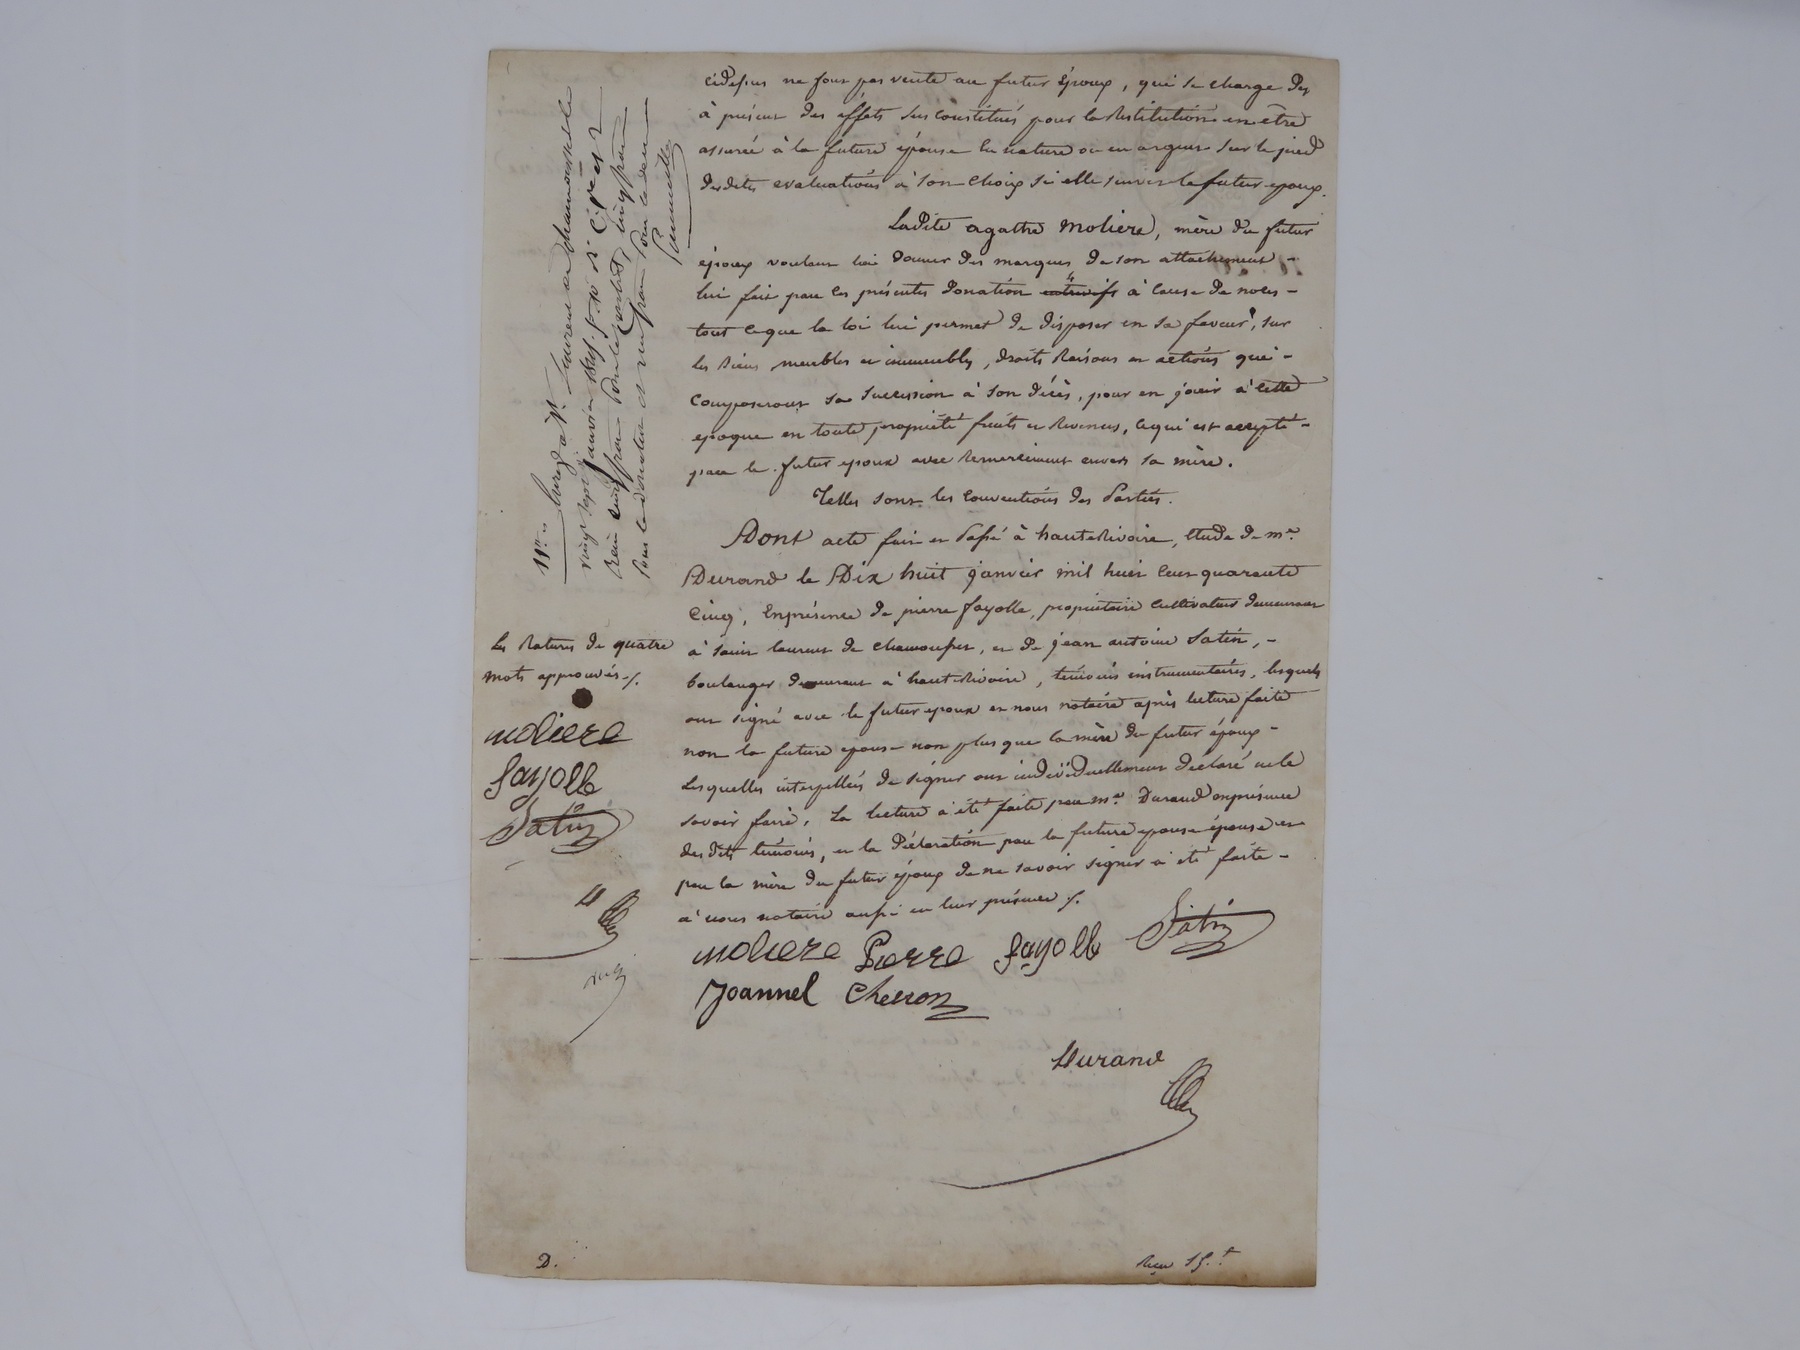 cidessus ne font pas vente au futur époux, qui se charge des
à présent des éffets sus constitués pour la Restitution en être
assurée à la future épouse en nature ou en argent sur le pied
desdites evaluations à son choix si elle survit le futur epoux.
Ladite agathe Moliere, mère du futur
epoux voulant lui donner des marques de son attachement -
lui fait par les présentes donation à cause de noces -
tout ceque la loi lui permet de disposer en sa faveur, sur
les biens meubles et immeubles, droits Raisons et actions qui -
composeront sa succession à son décès, pour en jouir à cette
epoque en toute propriété fruits et Revenus, cequi est accepté -
par le futur epoux avec Remerciement envers sa mère.
Telles sont les conventions des Parties.
Dont acte fait et Passé à hauteRivoire, etude de me.
Durand le Dix huit janvier mil huit cent quarante
cinq, Enprésence de pierre fayolle, propriétaire cultivateur demeurant
à saint laurent de chamousset, et de jean antoine Satin, -
boulanger demeurant à hauteRivoire, témoins instrumentaires, lesquels
ont signé avec le futur epoux et nous notaire après lecture faite
non la future epouse non plus que la mère du futur époux -
Lesquelles interpellées de signer ont individuellement declaré ne le
savoir faire. La lecture a été faite par me. Durand enprésence
des dits témoins, et la déclaration par la future epouse épouse et
par la mère du futur époux de ne savoir signer a été faite -
à nous notaire aussi en leur présence ./.
moliere Pierre fayolle Satin
Joannel Cherron
Durand
Les Ratures de quatre
mots approuvés ./.
moliere
fayolle
Satin
D
Enreg à St. Laurent de chamousset le
vingt sept janvier 1845. f.
D.
Reçu